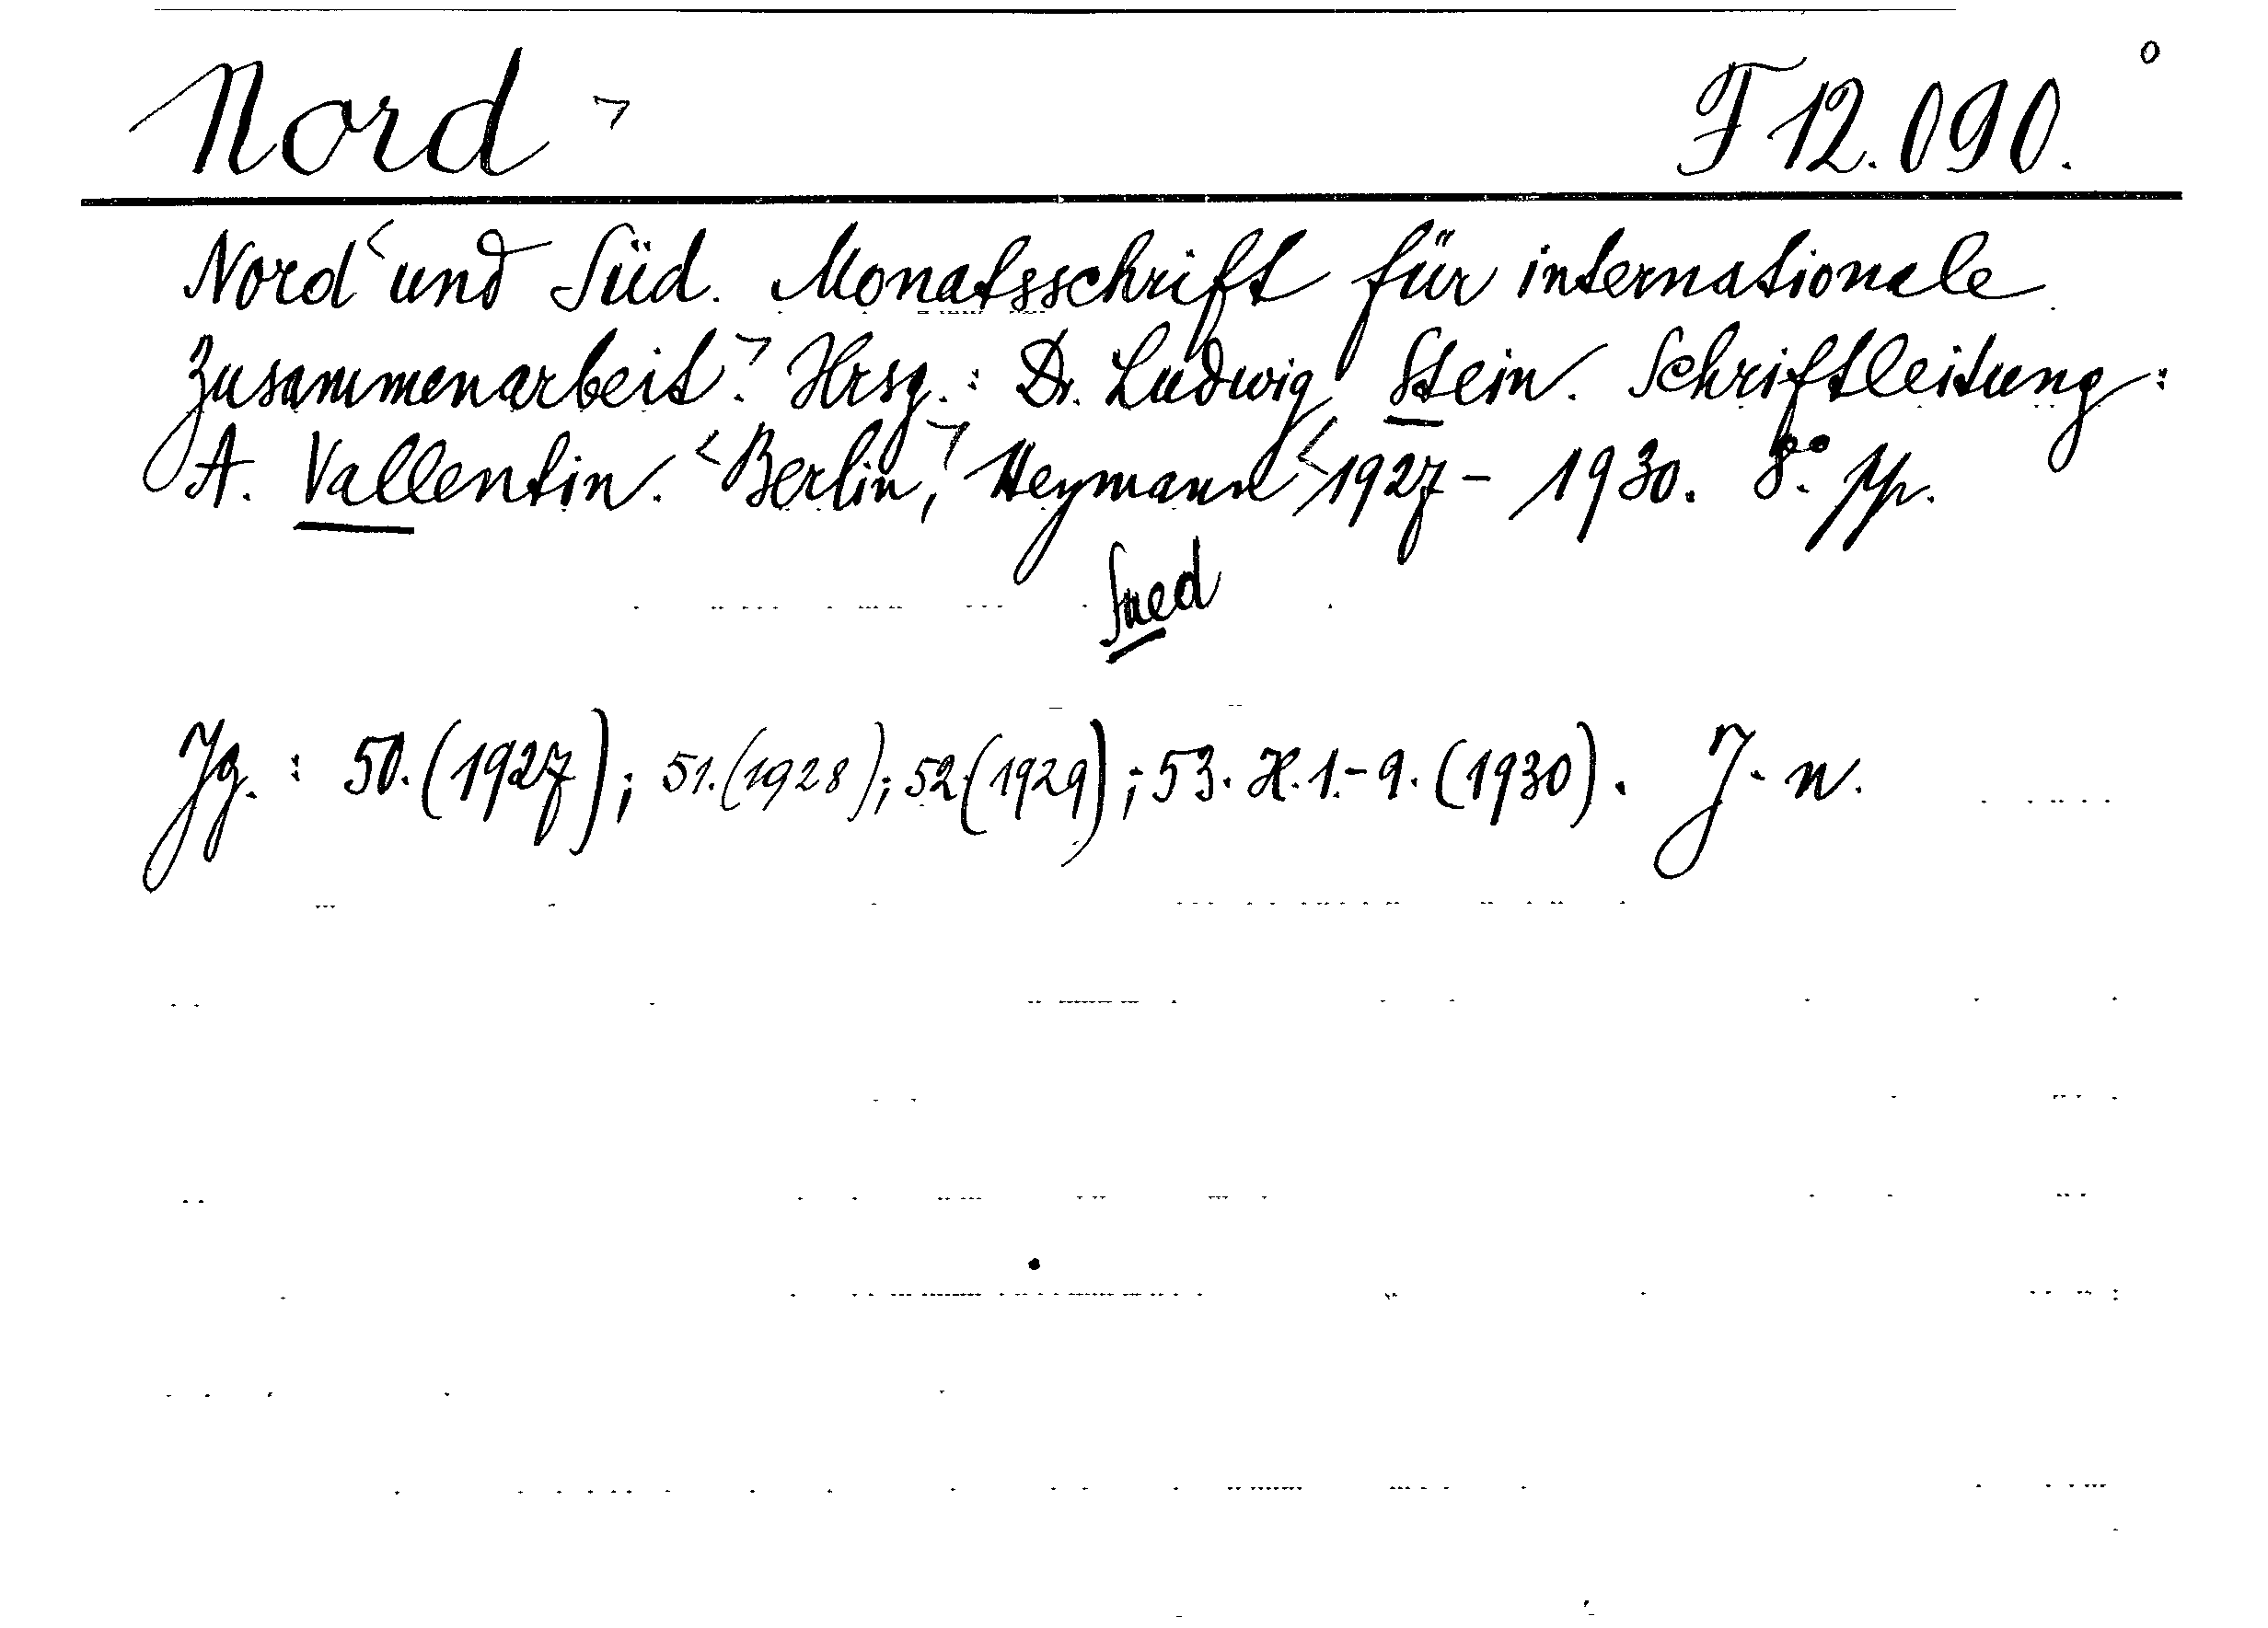 Nord ¬ F 12.090. o
Nord < und Süd. Monatsschrift für internationale
Zusammenarbeit. ¬ Hrsg.: Dr. Ludwig Stein. Schriftleitung:
A. Vallentin. < Berlin, ¬ Heymann < 1927 - 1930. 8°.
Sued
Jg.: 50.(1927); 51.(1928); 52.(1929); 53. H. 1.-9. (1930). J. n.